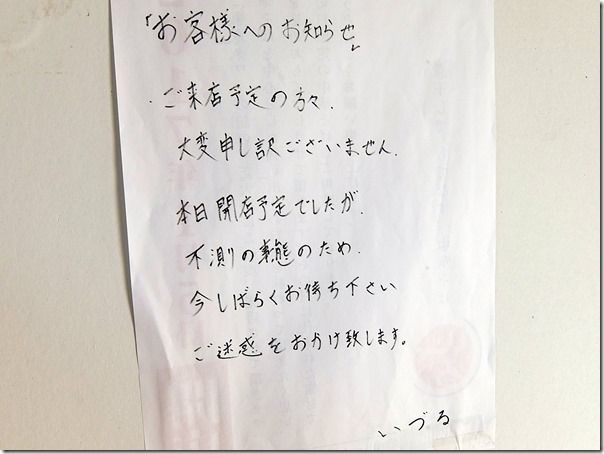 「お客様へのお知らせ」
・ご来店予定の方々、
大変申し訳ございません。
本日開店予定でしたが、
不測の事態のため、
今しばらくお待ち下さい
ご迷惑をおかけ致します。
いづる